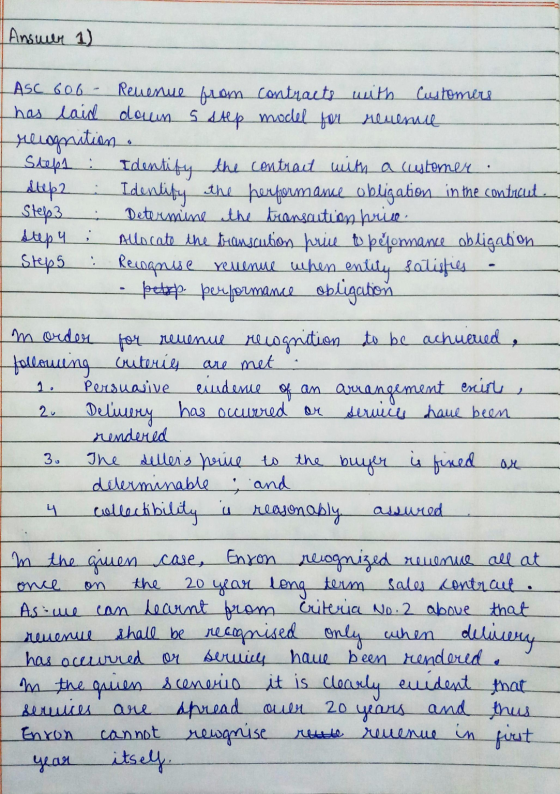 Answer 1)
ASC 606 - Revenue from contracts with Customers
has laid down 5 step model for revenue
recognition.
Step1 : Identify the contract with a customer.
Step2 : Identify the performance obligation in the contract.
Step3 : Determine the transaction price.
Step 4 : Allocate the transaction price to peformance obligation
Step5 : Recognise revenue when entity satisfies -
- performance obligation
In order for revenue recognition to be achieved,
following criteria are met.
1. Persuasive evidence of an arrangement exists,
2. Delivery has occurred or services have been
rendered
3. The seller's price to the buyer is fixed or
determinable ; and
4 collectibility is reasonably assured.
In the given case, Enron recognized revenue all at
once on the 20 year long term sales contract.
As we can learnt from Criteria No. 2 above that
revenue shall be recognised only when delivery
has occurred or services have been rendered.
In the given scenerio it is clearly evident that
services are spread over 20 years and thus
Enron cannot recognise revenue in first
year itself.